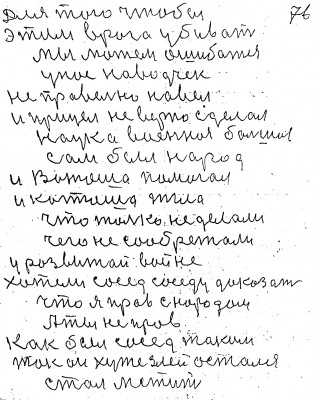 76
Для того чтобы
этим врага убиват
мы можем ошибатся
уное наводчек
не правелно навел
и прицел не верно сделал
Наука военноя болшоя
сам были народ
и Вотоша помогал
и котоша жила
что толко не делали
чего не сообретали
у розвытай войне
хотели сосед соседу доказат
что я прав с народом
А ты не пров
Как был сосед таким
так он хуже злей остался
стал метит